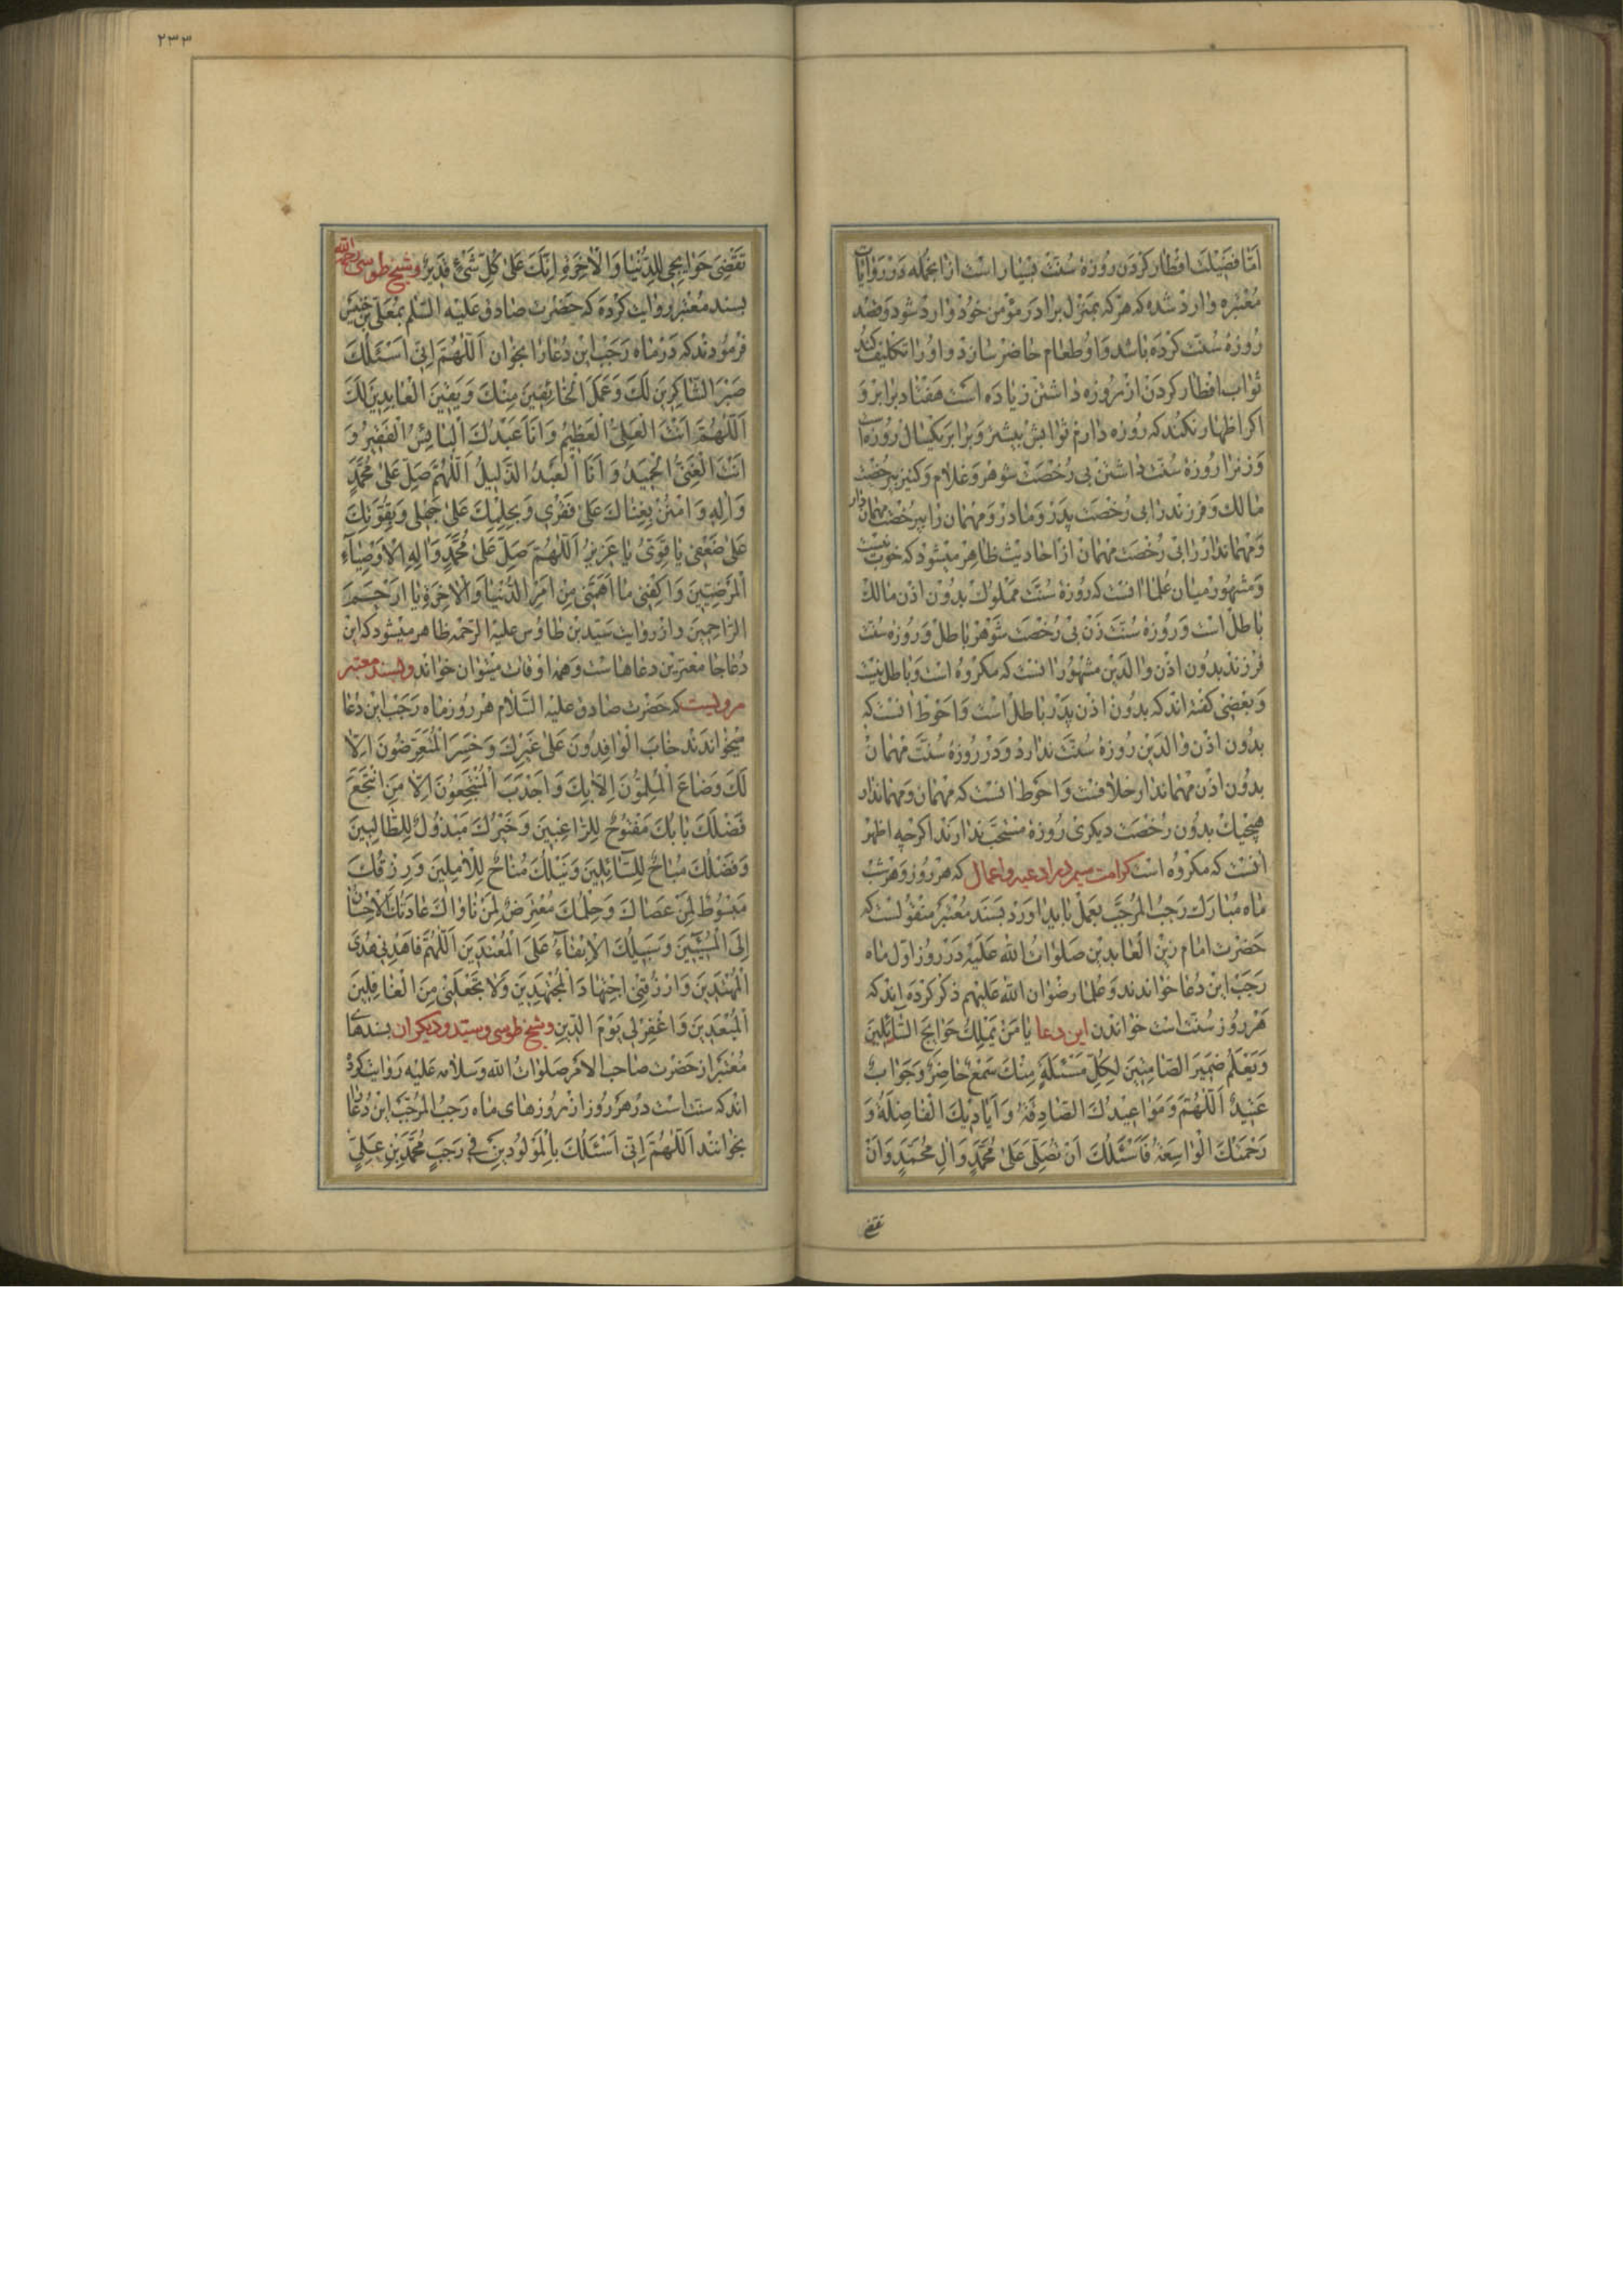 اما فضیلت افطار کردن روزهٔ سنت بسیار است ازانجمله در روایات
معتبره وارد شده که هر که بمنزل برادر مؤمن خود وارد شود و قصد
روزهٔ سنت کرده باشد و او طعام حاضر سازد و او را تکلیف کند
ثواب افطار کردن از روزه داشتن زیاده است هفتاد برابر و
اکر اظهار نکند که روزه دارم ثوابش بیشتر و برابر یکسال روزه
و زنرا روزهٔ سنت داشتن بی رخصت شوهر و غلام و کنیز بیرخصت
مالک و فرزند را بی رخصت پدر و مادر و مهمان را بیرخصت مهمان دار
و مهماندار را بی رخصت مهمان از احادیث ظاهر میشود که خوب نیست
و مشهور میان علما انست که روزهٔ سنت مملوک بدون اذن مالک
باطل است و روزهٔ سنت زن بی رخصت شوهر باطل و روزه سنت
فرزند بدون اذن والدین مشهور انست که مکروه است و باطل نیست
و بعضی کفته اند که بدون اذن پدر باطل است و احوط انست که
بدون اذن والدین روزهٔ سنت ندارد و در روزهٔ سنت مهمان
بدون اذن مهماندار خلافست و احوط انست که مهمان و مهماندار
هیچیک بدون رخصت دیکری روزهٔ مستحب ندارند اکرچه اظهر
انست که مکروه است کرامت سیم در ادعیه و اعمال که هر روز و هر شب
ماه مبارک رجب المرجب بعمل باید اورد بسند معتبر منقولست که
حضرت امام زین العابدین صلوات الله علیه در روز اول ماه
رجب این دعا خواندند و علما رضوان الله علیهم ذکر کرده اند که
هر روز سنت است خواندن این دعا یٰا مَنْ یَمْلِكُ حَوٰایِجَ السّٰآئِلینَ
وَیَعْلَمُ ضَمیرَ الصّامِتینَ لِکُلِّ مَسْئَلَةٍ مِنْكَ سَمْعٌ حٰاضِرٌ وَجَوٰابٌ
عَتیدٌ اَللّٰهُمَّ وَمَوٰاعیدُكَ الصّٰادِقَةُ وَاَیٰادیكَ الْفٰاضِلَةُ وَ
رَحْمَتُكَ الْوٰاسِعَةُ فَاَسْئَلُكَ اَنْ تُصَلِّیَ عَلیٰ مُحَمَّدٍ وَاٰلِ مُحَمَّدٍ وَاَنْ
تقضی
٢٣٣
تَقْضِیَ حَوٰایِجی لِلدُّنْیٰا وَالْاٰخِرَةِ اِنَّكَ عَلیٰ کُلِّ شَیْءٍ قَدیرٌ وشیخ طوسی رحمه الله
بسند معتبر روایت کرده که حضرت صادق علیه السلم بمعلی بن خنیس
فرمودند که در ماه رجب این دعا را بخوان اَللّٰهُمَّ اِنّی اَسْئَلُكَ
صَبْرَ الشّٰاکِرینَ لَكَ وَعَمَلَ الْخٰائِفینَ مِنْكَ وَیَقینَ الْعٰابِدینَ لَكَ
اَللّٰهُمَّ اَنْتَ الْعَلِیُّ الْعَظیمُ وَاَنَا عَبْدُكَ الْبٰائِسُ الْفَقیرُ وَ
اَنْتَ الْغَنِیُّ الْحَمیدُ وَاَنَا الْعَبْدُ الذَّلیلُ اَللّٰهُمَّ صَلِّ عَلیٰ مُحَمَّدٍ
وَاٰلِهِ وَامْنُنْ بِغِنٰاكَ عَلیٰ فَقْری وَبِحِلْمِكَ عَلیٰ جَهْلی وَبِقُوَّتِكَ
عَلیٰ ضَعْفی یٰا قَوِیُّ یٰا عَزیزُ اَللّٰهُمَّ صَلِّ عَلیٰ مُحَمَّدٍ وَاٰلِهِ الْاَوْصِیٰآءِ
الْمَرْضِیّینَ وَاکْفِنی مٰا اَهَمَّنی مِنْ اَمْرِ الدُّنْیٰا وَالْاٰخِرَةِ یٰا اَرْحَمَ
الرّٰاحِمینَ و از روایت سید بن طاوس علیه الرحمه ظاهر میشود که این
دعا جامعترین دعاهاست و همه اوقات میتوان خواند و بسند معتبر
مرویست که حضرت صادق علیه السلام هر روز ماه رجب این دعا
میخواندند خٰابَ الْوٰافِدُونَ عَلیٰ غَیْرِكَ وَخَسِرَ الْمُتَعَرِّضُونَ اِلّٰا
لَكَ وَضٰاعَ الْمُلِمُّونَ اِلّٰا بِكَ وَاَجْدَبَ الْمُنْتَجِعُونَ اِلّٰا مَنِ انْتَجَعَ
فَضْلَكَ بٰابُكَ مَفْتُوحٌ لِلرّٰاغِبینَ وَخَیْرُكَ مَبْذُولٌ لِلطّٰالِبینَ
وَفَضْلُكَ مُبٰاحٌ لِلسّٰآئِلینَ وَنَیْلُكَ مُتٰاحٌ لِلْاٰمِلینَ وَرِزْقُكَ
مَبْسُوطٌ لِمَنْ عَصٰاكَ وَحِلْمُكَ مُعْتَرِضٌ لِمَنْ نٰاوٰاكَ عٰادَتُكَ الْاِحْسٰانُ
اِلَی الْمُسیٓئینَ وَسَبیلُكَ الْاِبْقٰآءُ عَلَی الْمُعْتَدینَ اَللّٰهُمَّ فَاهْدِنی هُدَی
الْمُهْتَدینَ وَارْزُقْنِی اجْتِهٰادَ الْمُجْتَهِدینَ وَلٰا تَجْعَلْنی مِنَ الْغٰافِلینَ
الْمُبْعَدینَ وَاغْفِرْ لی یَوْمَ الدّینِ وشیخ طوسی و سید و دیکران بسندهای
معتبر از حضرت صاحب الامر صلوات الله وسلامه علیه روایت کرده
اند که سنت است در هر روز از روزهای ماه رجب المرجب این دعا را
بخوانند اَللّٰهُمَّ اِنّی اَسْئَلُكَ بِالْمَوْلُودَیْنِ فی رَجَبٍ مُحَمَّدِ بْنِ عَلِیٍّ